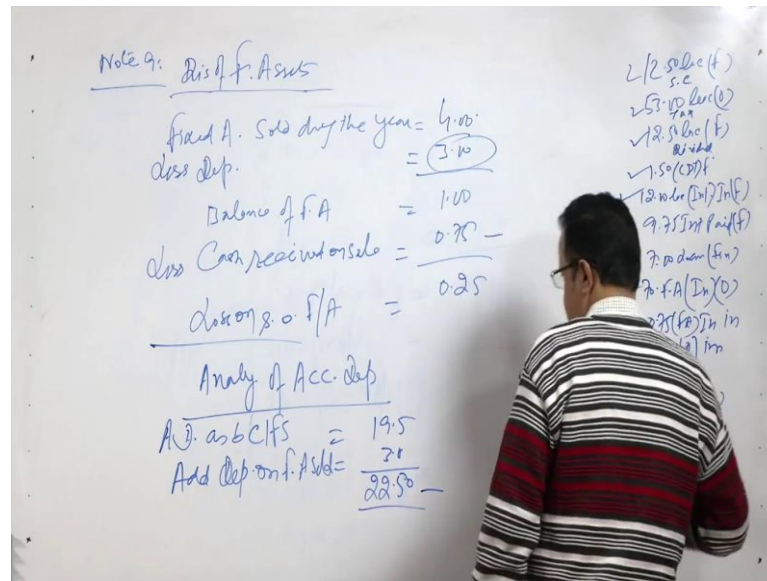 Note 9: Dis of F. Assets
Fixed A. Sold during the year = 4.00.
Less Dep. = 3.00
Balance of F.A = 1.00
Less Cash received on sale = 0.75 -
Loss on s.o. F/A = 0.25
Analy of Acc. Dep
A.D. as b C/fs = 19.5
Add Dep. on f. A Sold = 3.0
22.50 -
2/2.50 lac (f)
S.C
53.00 lac (0)
Tax
12.50 lac (f)
1.50 (CDT) f
12.00 lac (Int) In (f)
9.75 Int Paid (f)
7.00 (fin)
70. F.A (In) (0)
0.75 (FA) In in